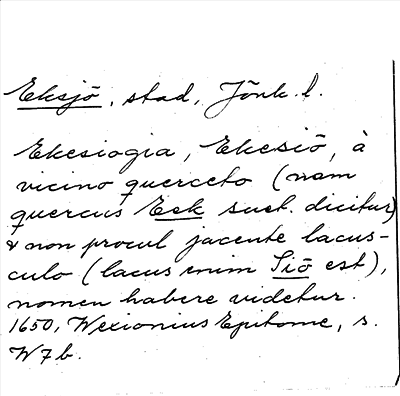 Eksjö, stad, Jönk. l.
Ekesiogia, Ekesiö, à
vicino querceto (nam
quercus Eek suet. dicitur)
& non procul jacente lacus-
culo (lacus enim Siö est),
nomen habere videtur.
1650, Wexionius Epitome, s.
W7b.